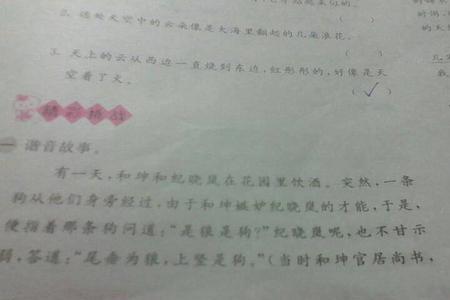 2. 远处天空中的云朵像是大海里翻起的几朵浪花。
(　)
3. 天上的云从西边一直烧到东边,红彤彤的,好像是天
空着了火。
(✓)
挑战
一 谐音故事。
有一天,和珅和纪晓岚在花园里饮酒。突然,一条
狗从他们身旁经过,由于和珅嫉妒纪晓岚的才能,于是,
便指着那条狗问道:“是狼是狗?”纪晓岚呢,也不甘示
弱,答道:“尾垂为狼,上竖是狗。”(当时和珅官居尚书,